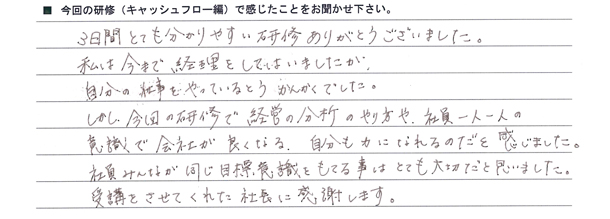 ■ 今回の研修（キャッシュフロー編）で感じたことをお聞かせ下さい。
3日間とても分かりやすい研修ありがとうございました。
私は今まで経理をしてはいましたが、
自分の仕事をやっているとうかんかくでした。
しかし、今回の研修で経営の分析のやり方や、社員一人一人の
意識で会社が良くなる、自分も力になれるのだを感じました。
社員みんなが同じ目標、意識をもてる事はとても大切だと思いました。
受講をさせてくれた社長に感謝します。